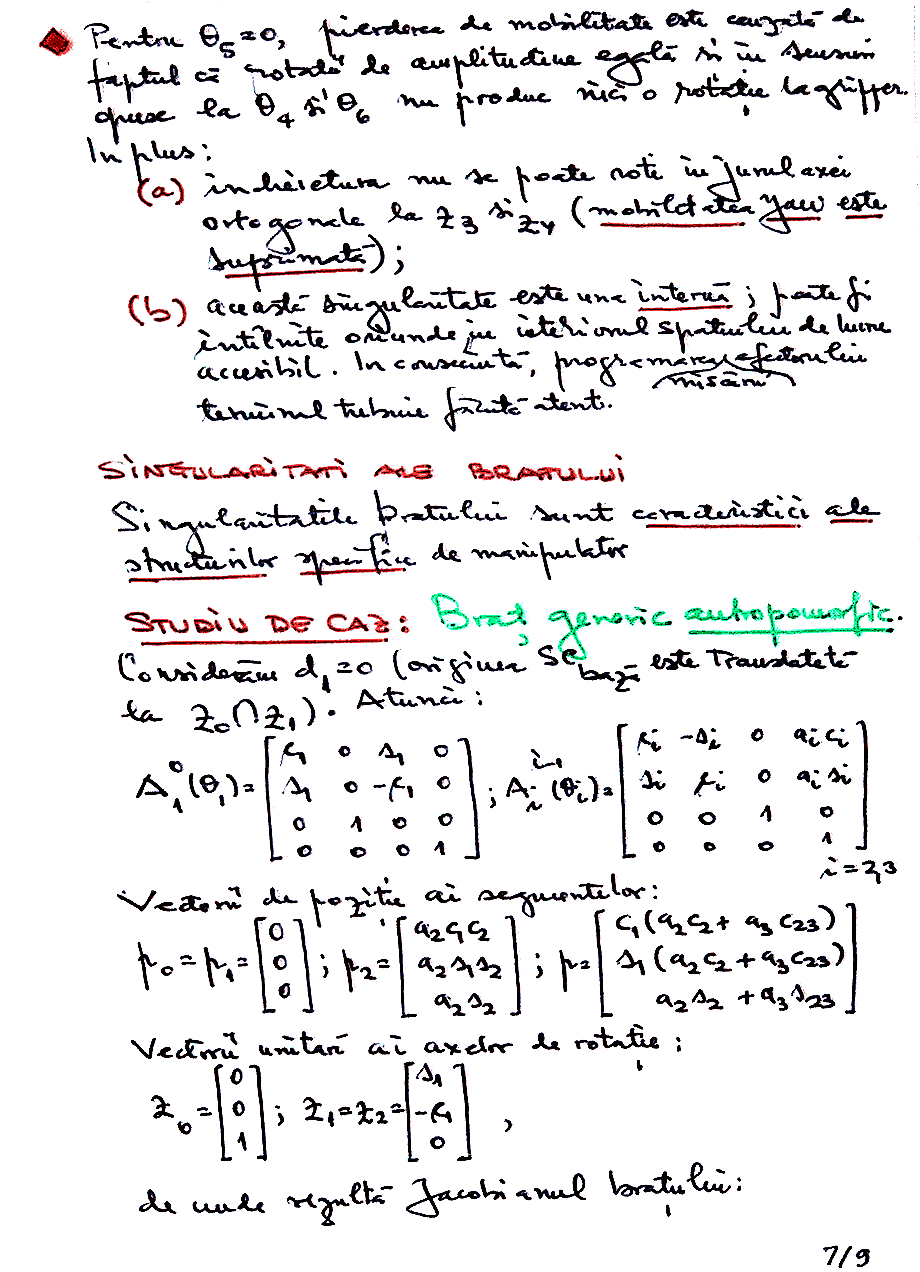 Pentru θ5=0, pierderea de mobilitate este cauzată de
faptul că rotații de amplitudine egală și în sensuri
opuse la θ4 și θ6 nu produc nici o rotație la gripper.
In plus:
(a) încheietura nu se poate roti în jurul axei
ortogonale la z3 și z4 (mobilitatea yaw este
suprimată);
(b) această singularitate este una internă; poate fi
întîlnită oriunde în interiorul spațiului de lucru
accesibil. In consecință, programarea mișcării efectorului
terminal trebuie făcută atent.
SINGULARITATI ALE BRATULUI
Singularitatile brațului sunt caracteristici ale
structurilor specifice de manipulator
STUDIU DE CAZ: Braț generic antropomorfic.
Considerăm d1=0 (originea SC bază este translatată
la z0∩z1). Atunci:
A1^0(θ1)= [c1 0 s1 0; s1 0 -c1 0; 0 1 0 0; 0 0 0 1] ; Ai^i-1(θi)= [ci -si 0 ai ci; si ci 0 ai si; 0 0 1 0; 0 0 0 1]
i=2,3
Vectorii de poziție ai segmentelor:
p0=p1= [0; 0; 0] ; p2= [a2c1c2; a2s1s2; a2s2] ; p= [c1(a2c2+a3c23); s1(a2c2+a3c23); a2s2+a3s23]
Vectorii unitari ai axelor de rotație:
z0= [0; 0; 1] ; z1=z2= [s1; -c1; 0] ,
de unde rezultă Jacobianul brațului:
7/9